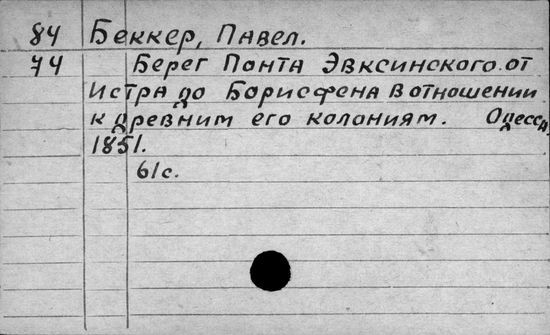 84 Беккер, Павел.
74 Берег Понта Эвксинского от
Истра до Борисфена в отношении
к древним его колониям. Одесса,
1851.
61с.